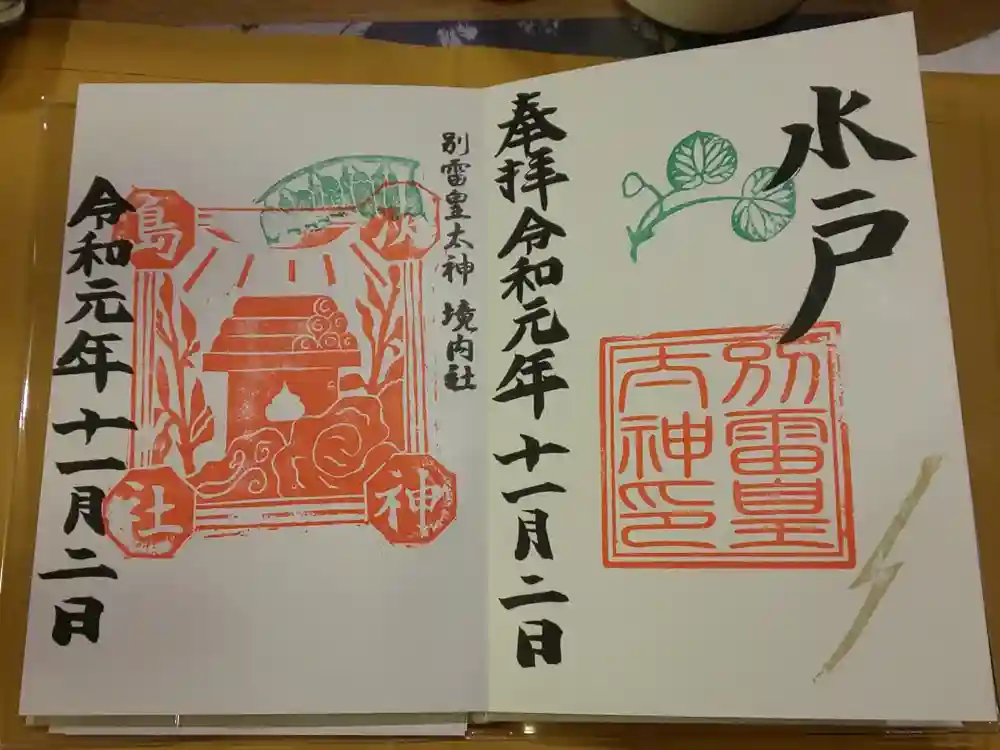 水戸
別雷皇
大神印
奉拝 令和元年十一月二日
別雷皇太神 境内社
鳥
神
社
令和元年十一月二日